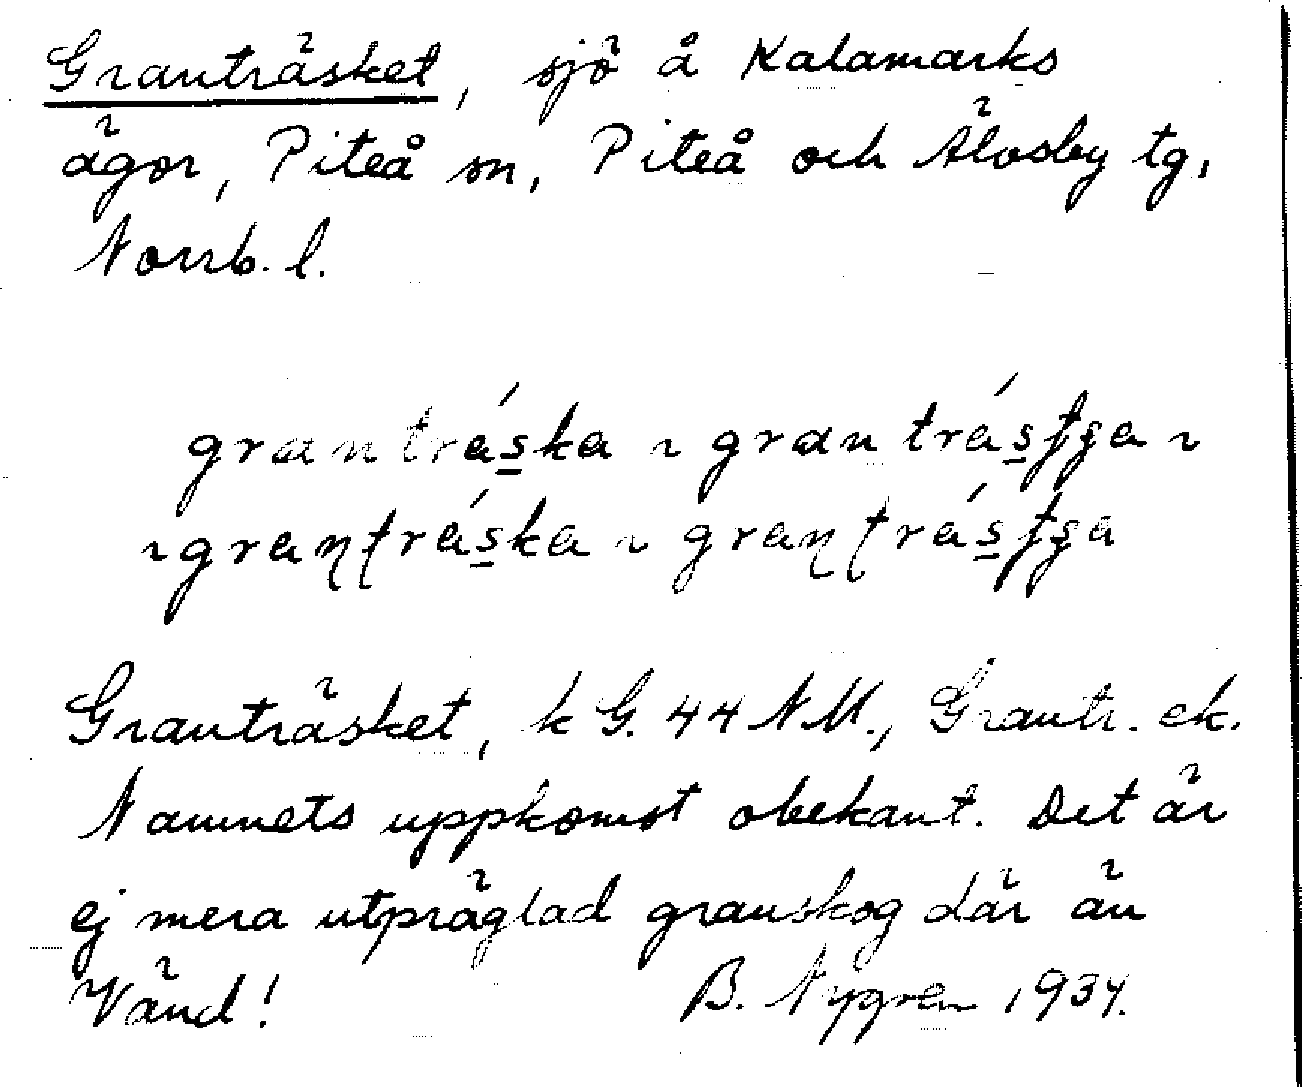 Granträsket, sjö å Kalamarks
ägor, Piteå sn, Piteå och Älvsby tg,
Norrb. l.
grantráska ~ grantrásʃʂa ~
~ graɳʈráska ~ graɳʈrásʃʂa
Granträsket, k G. 44 NM., Grantr. ek.
Namnets uppkomst obekant. Det är
ej mera utpräglad granskog där än
Vänd! B. Nygren 1934.